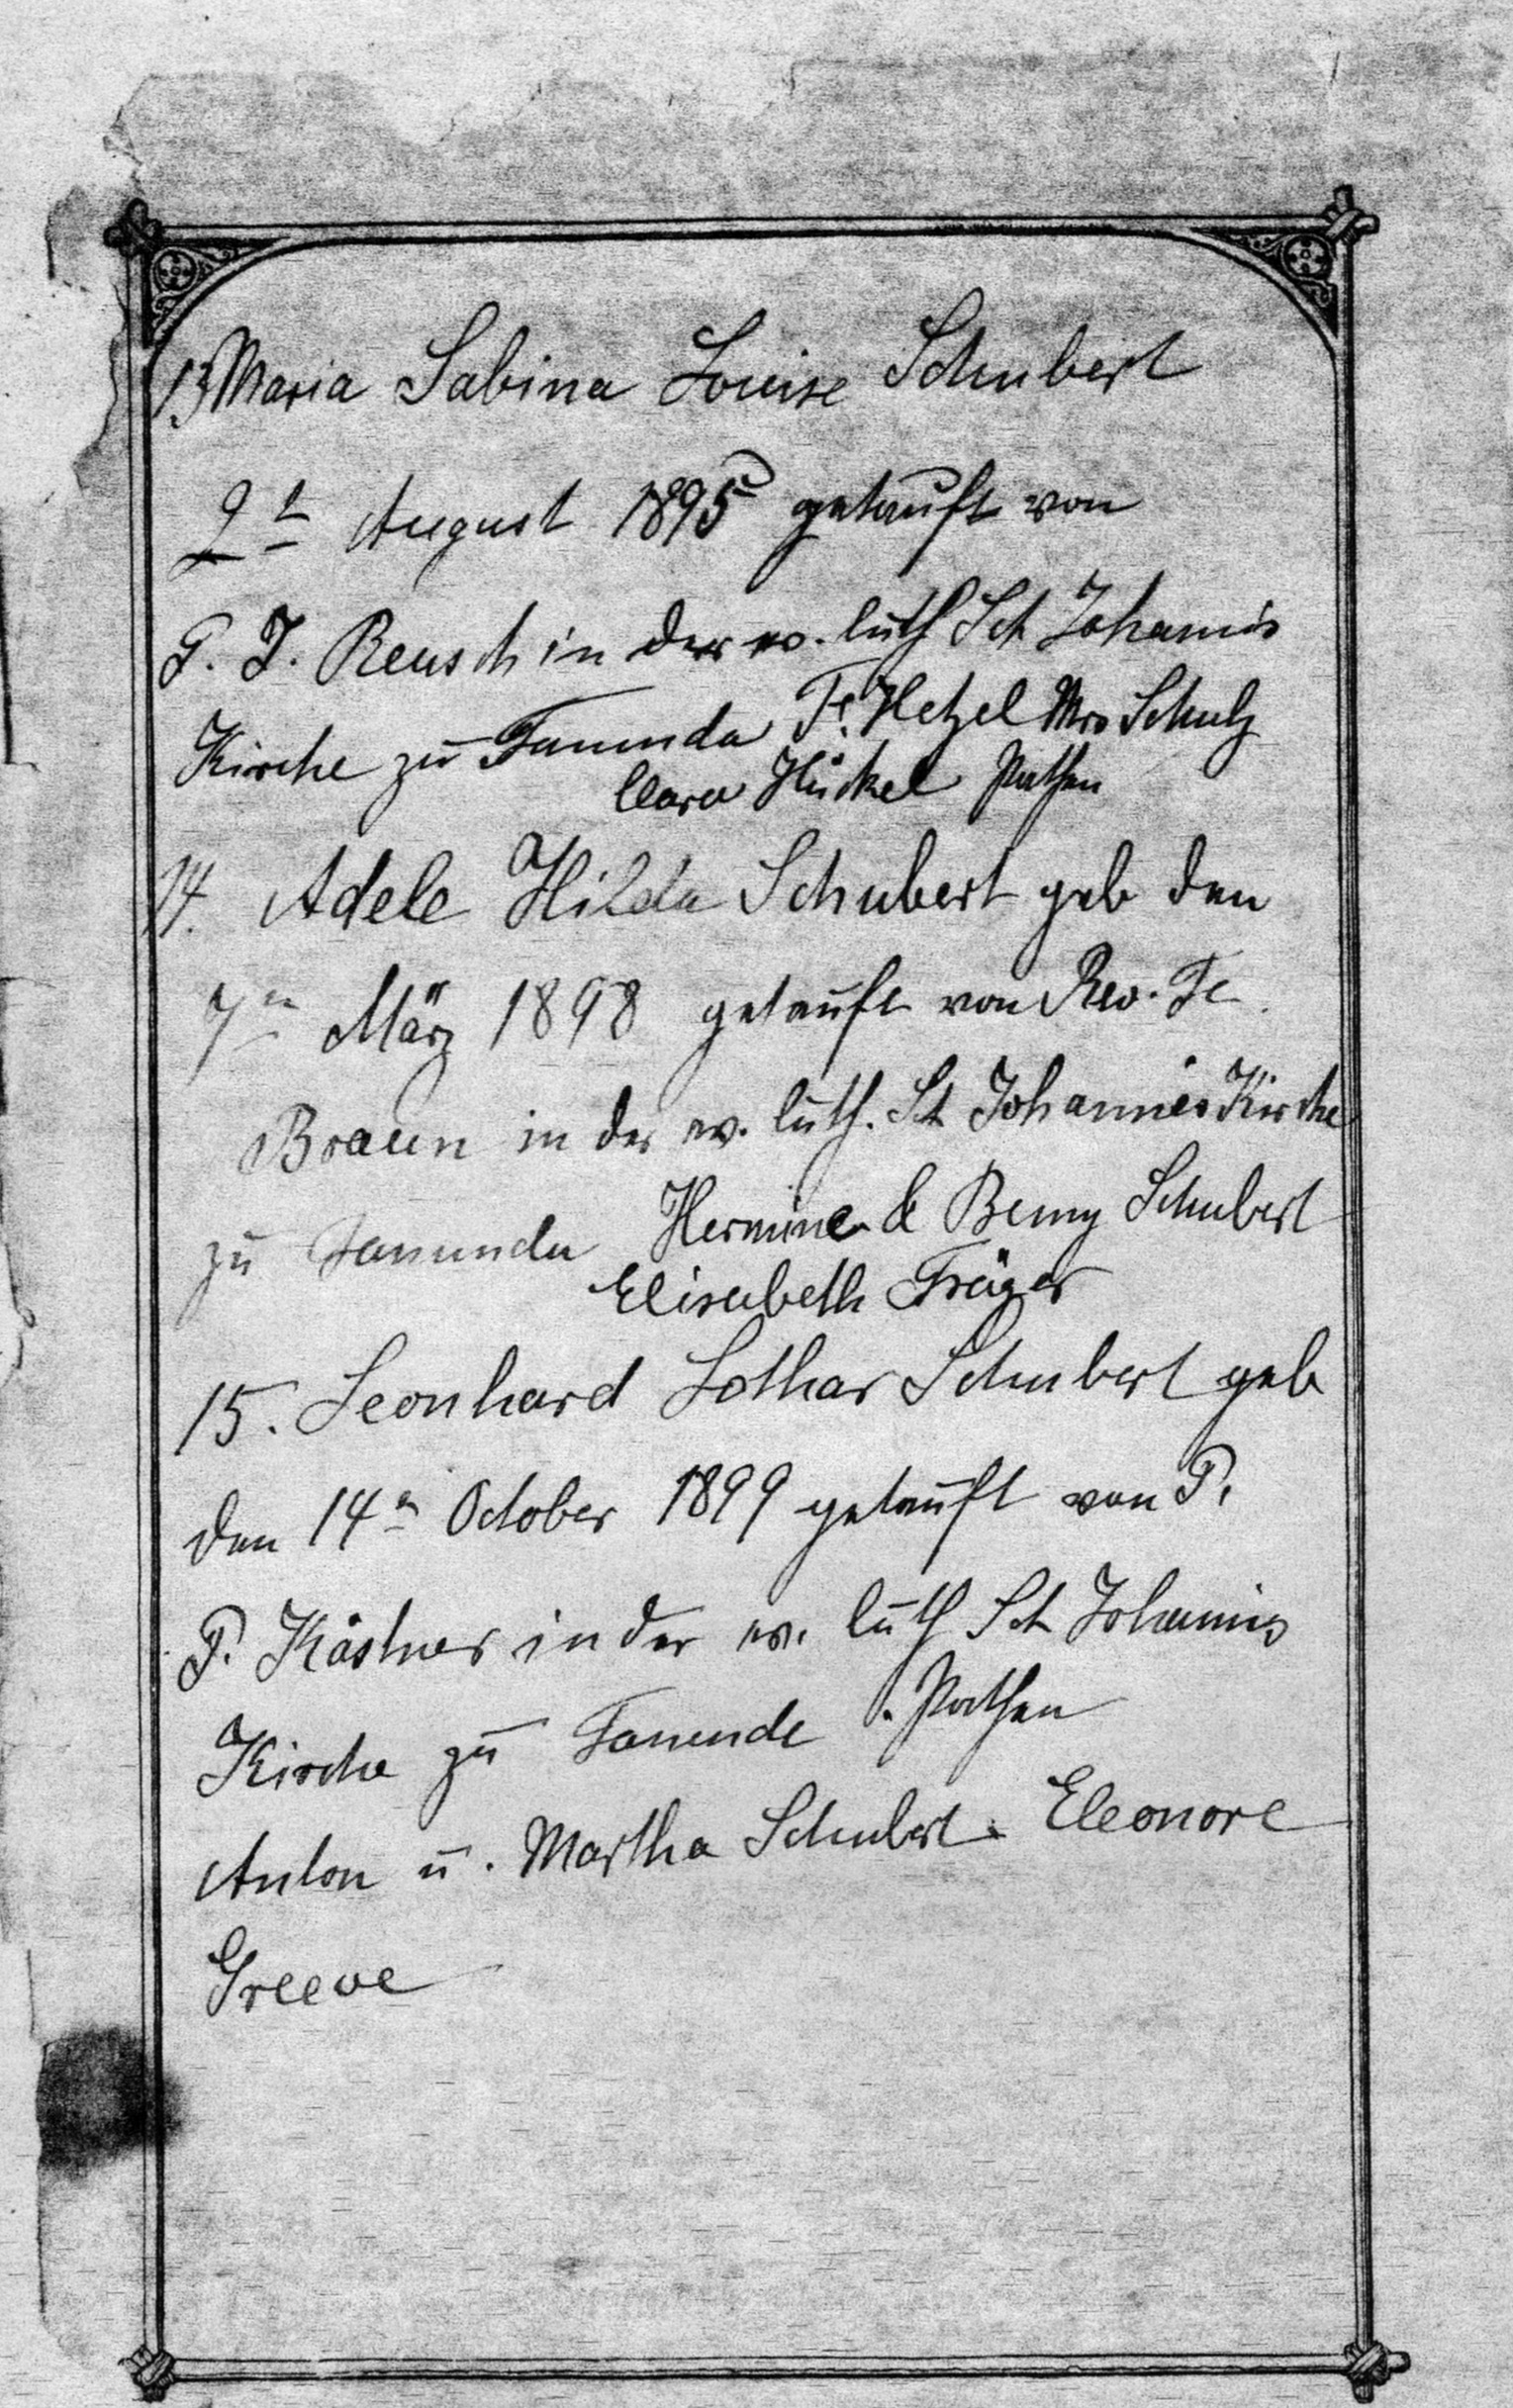 13 Maria Sabina Louise Schubert
2t August 1895 getauft von
P. J. Reusch in der ev. luth Sct Johannis
Kirche zu Tanunda Fr. Hetzel Mrs Schulz
Clara Hückel Pathen
14. Adele Hilda Schubert geb den
7ten März 1898 getauft von Rev. Te
Braun in der ev. luth. St Johannis Kirche
zu Tanunda Hermine & Benny Schubert
Elisabeth Träger
15. Leonhard Lothar Schubert geb
den 14n October 1899 getauft von P.
P. Kästner in der ev. luth Sct Johannis
Kirche zu Tanunde . Pathen
Anton u. Martha Schubert. Eleonore
Greeve